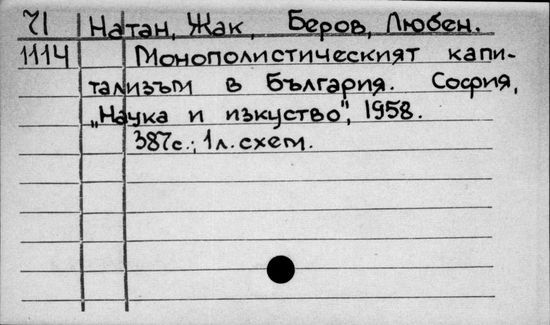 Ч Натан, Жак, Беров, Любен.
1114 Монополистическият капи-
тализъм в България. София,
„Наука и изкуство", 1958.
387с.; 1л. схем.